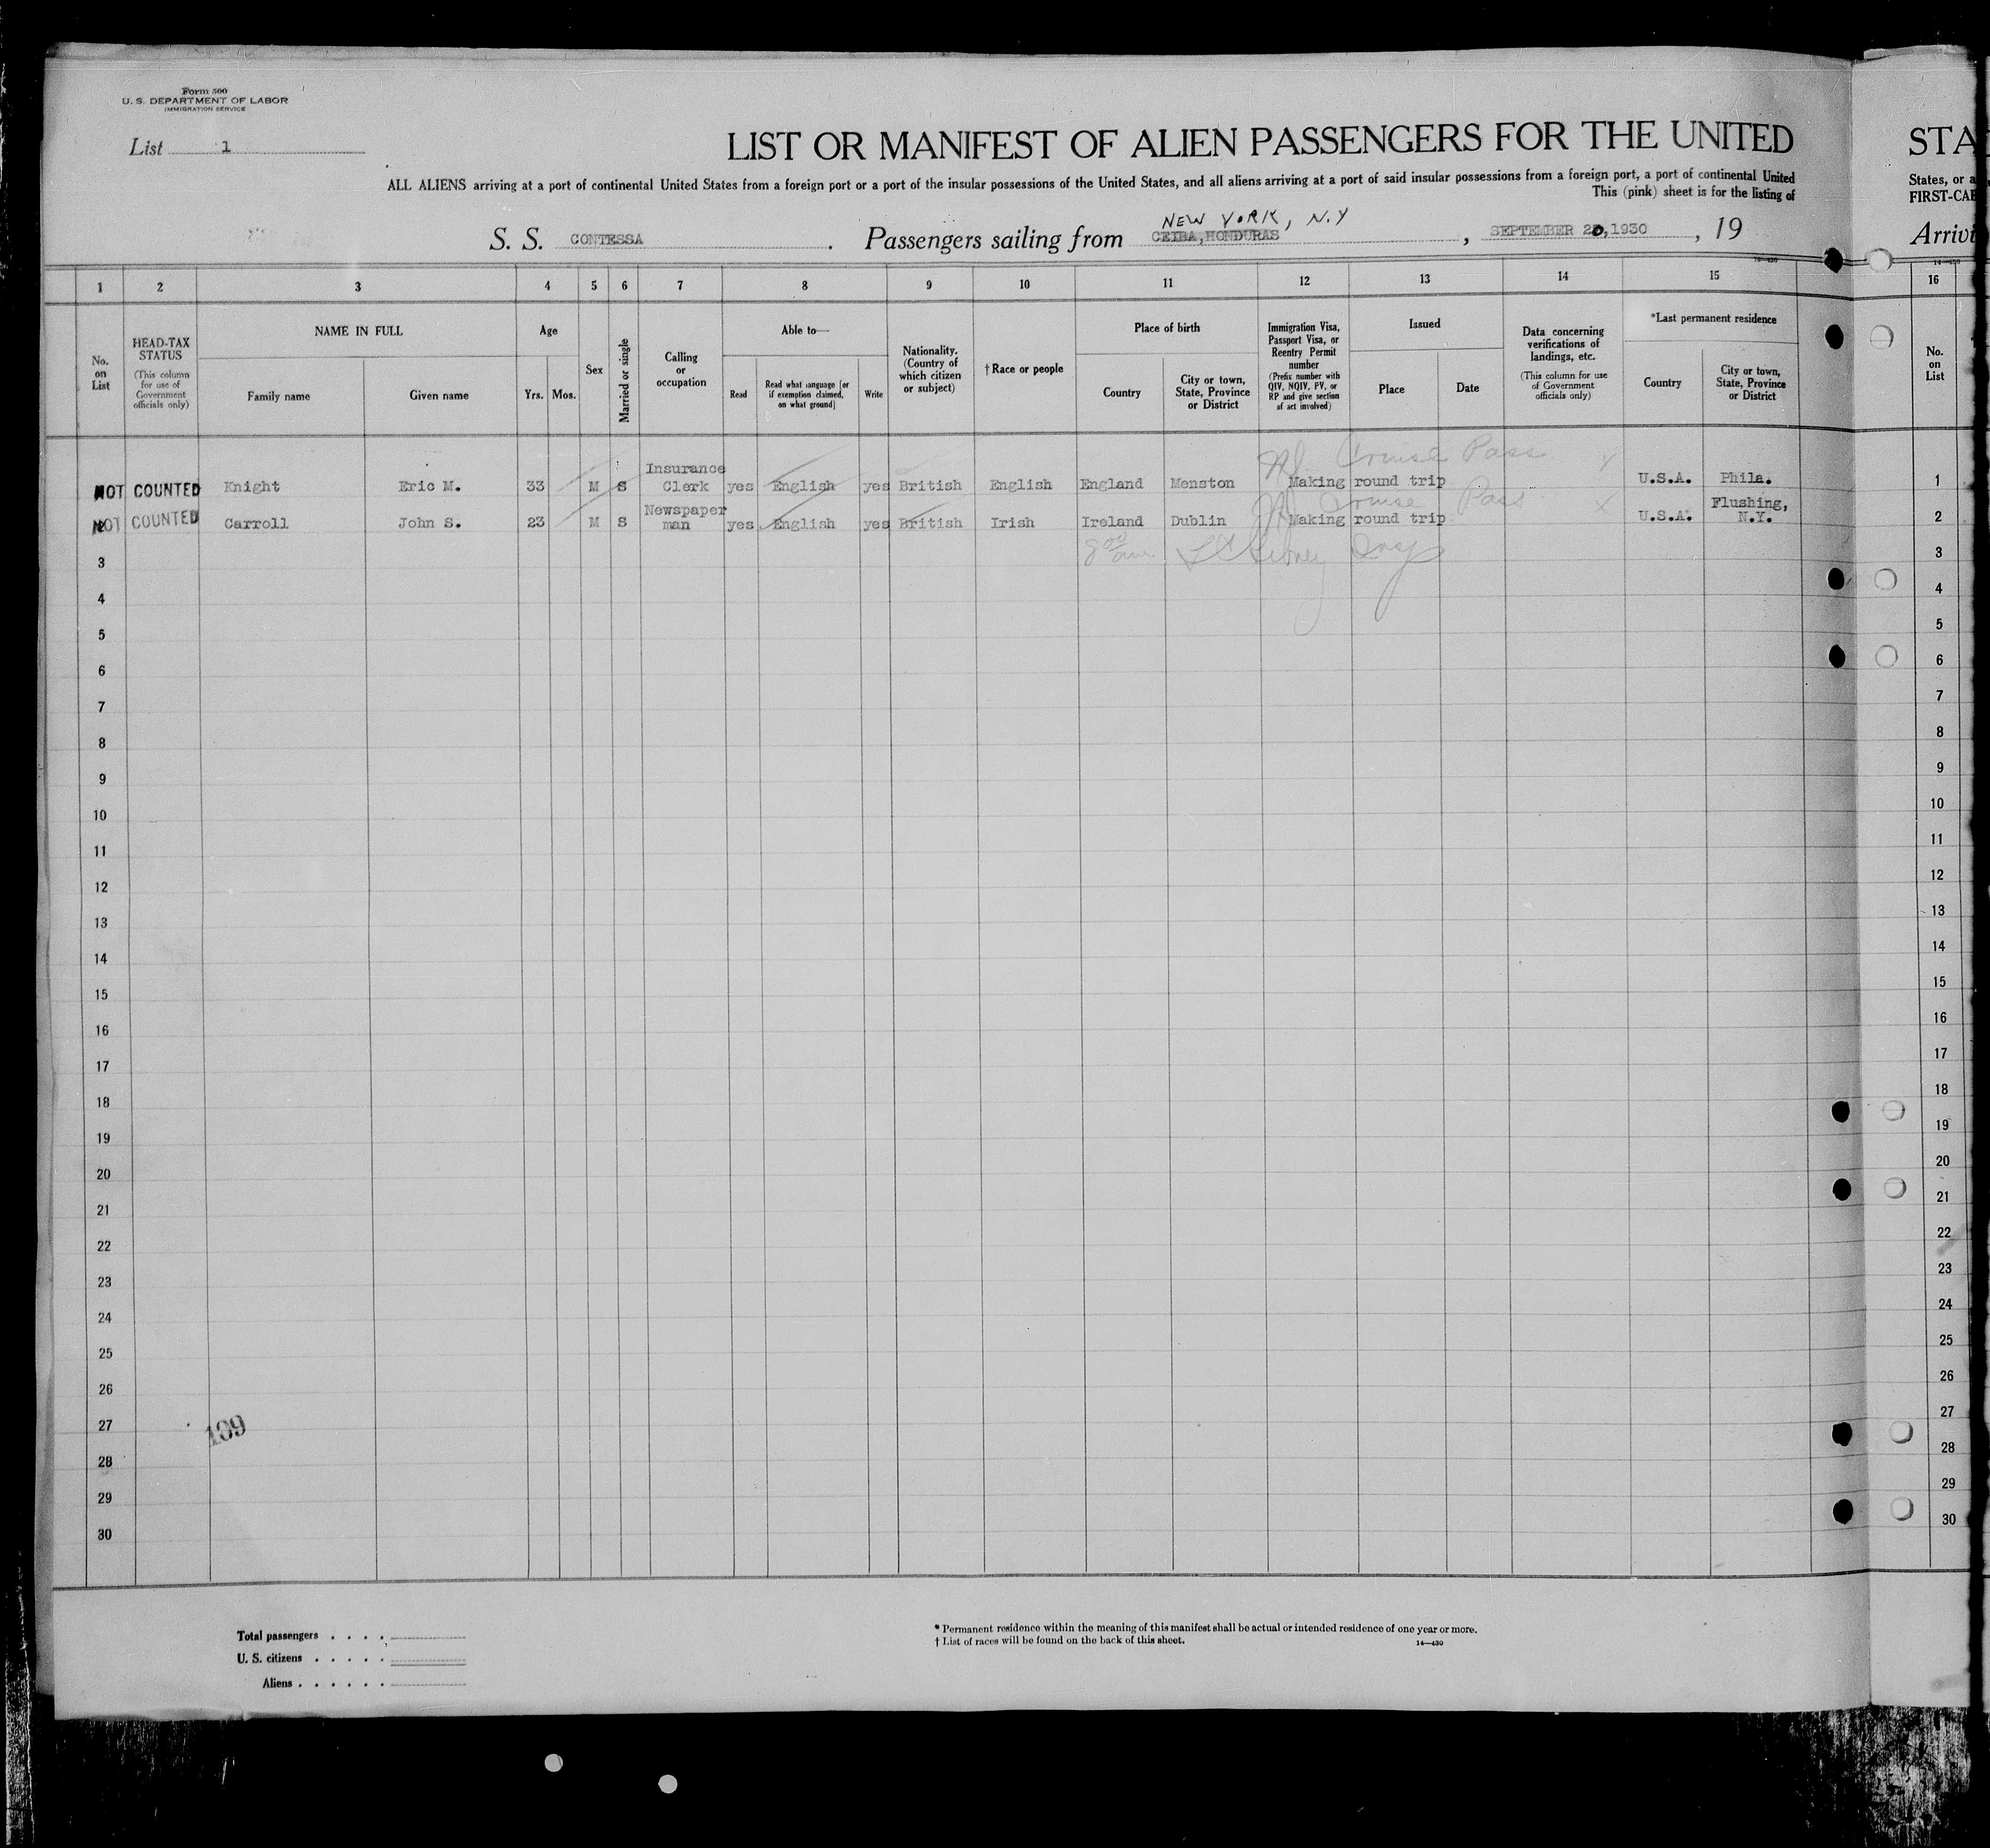 Form 500
U. S. DEPARTMENT OF LABOR
IMMIGRATION SERVICE
List 1
LIST OR MANIFEST OF ALIEN PASSENGERS FOR THE UNITED
STA
ALL ALIENS arriving at a port of continental United States from a foreign port or a port of the insular possessions of the United States, and all aliens arriving at a port of said insular possessions from a foreign port, a port of continental United
States, or a
This (pink) sheet is for the listing of
FIRST-CAB
NEW YORK, N.Y
S. S. CONTESSA . Passengers sailing from CEIBA, HONDURAS , SEPTEMBER 20, 1930 , 19
Arrivi
1 2 3 4 5 6 7 8 9 10 11 12 13 14 15 16
No. on List
HEAD-TAX STATUS
(This column for use of Government officials only)
NAME IN FULL
Family name
Given name
Age
Yrs. Mos.
Sex
Married or single
Calling or occupation
Able to—
Read
Read what language [or if exemption claimed, on what ground]
Write
Nationality. (Country of which citizen or subject)
† Race or people
Place of birth
Country
City or town, State, Province or District
Immigration Visa, Passport Visa, or Reentry Permit number
(Prefix number with QIV, NQIV, PV, or RP and give section of act involved)
Issued
Place
Date
Data concerning verifications of landings, etc.
(This column for use of Government officials only)
*Last permanent residence
Country
City or town, State, Province or District
No. on List
Cruise Pass.
NOT COUNTED Knight Eric M. 33 M S Insurance Clerk yes English yes British English England Menston Making round trip U.S.A. Phila. 1
Cruise Pass
NOT COUNTED Carroll John S. 23 M S Newspaper man yes English yes British Irish Ireland Dublin Making round trip U.S.A. Flushing, N.Y. 2
3 3
4 4
5 5
6 6
7 7
8 8
9 9
10 10
11 11
12 12
13 13
14 14
15 15
16 16
17 17
18 18
19 19
20 20
21 21
22 22
23 23
24 24
25 25
26 26
27 27
109
28 28
29 29
30 30
Total passengers . . . .
U. S. citizens . . . . .
Aliens . . . . . .
* Permanent residence within the meaning of this manifest shall be actual or intended residence of one year or more.
† List of races will be found on the back of this sheet.
14—430